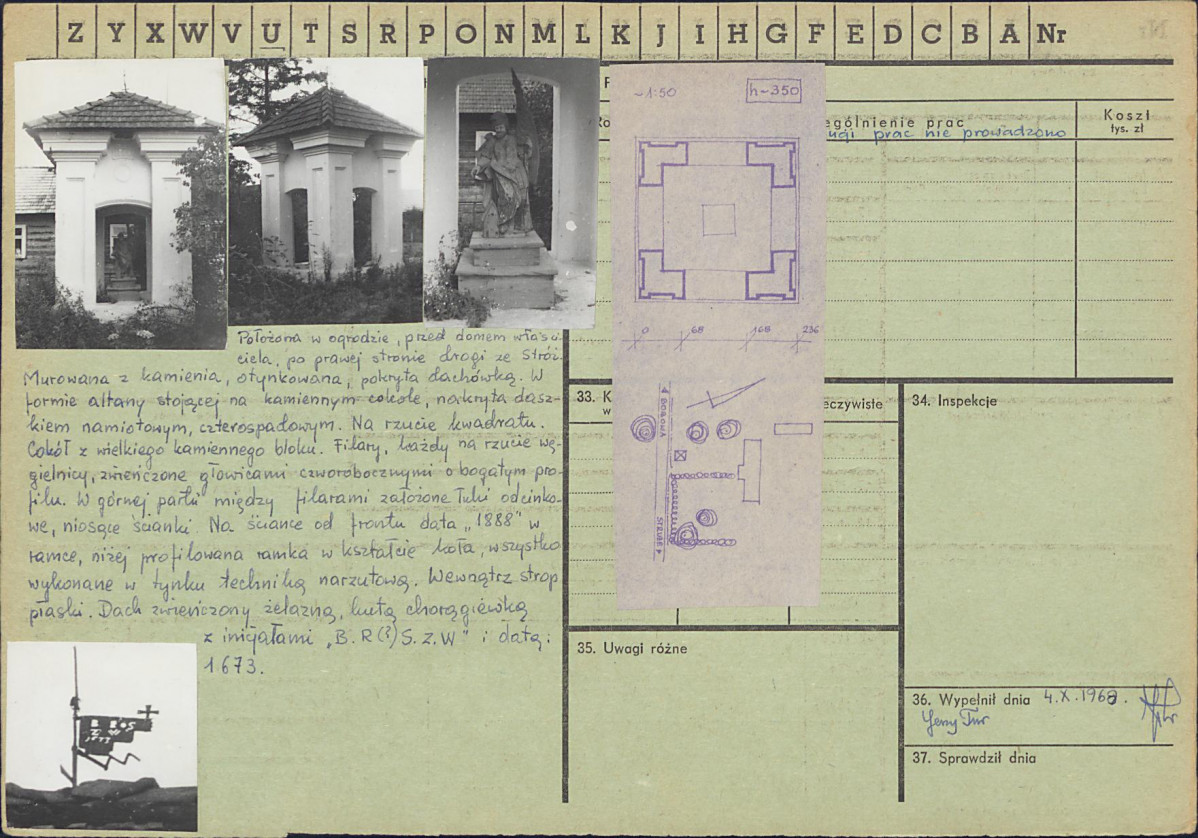 Z Y X W V U T S R P O N M L K J I H G F E D C B A Nr
ególnienie prac
Koszt
tys. zł
ugi prac nie prowadzono
~1:50
h-350
0 68 168 236
Położona w ogrodzie, przed domem właści-
ciela, po prawej stronie drogi ze Stróż.
Murowana z kamienia, otynkowana, pokryta dachówką. W
formie altany stojącej na kamiennym cokole, nakryta dasz-
kiem namiotowym, czterospadowym. Na rzucie kwadratu.
Cokół z wielkiego kamiennego bloku. Filary, każdy na rzucie wę-
gielnicy, zwieńczone głowicami czworobocznymi o bogatym pro-
filu. W górnej partii między filarami założone łuki odcinko-
we, niosące ścianki. Na ściance od frontu data „1888" w
ramce, niżej profilowana ramka w kształcie koła, wszystko
wykonane w tynku techniką narzutową. Wewnątrz strop
płaski. Dach zwieńczony żelazną, kutą chorągiewką
z inicjałami „B.R(?)S.Z.W" i datą:
1673.
33. K
w
eczywiste
34. Inspekcje
35. Uwagi różne
36. Wypełnił dnia 4.X.1968.
Jerzy Tur
37. Sprawdził dnia